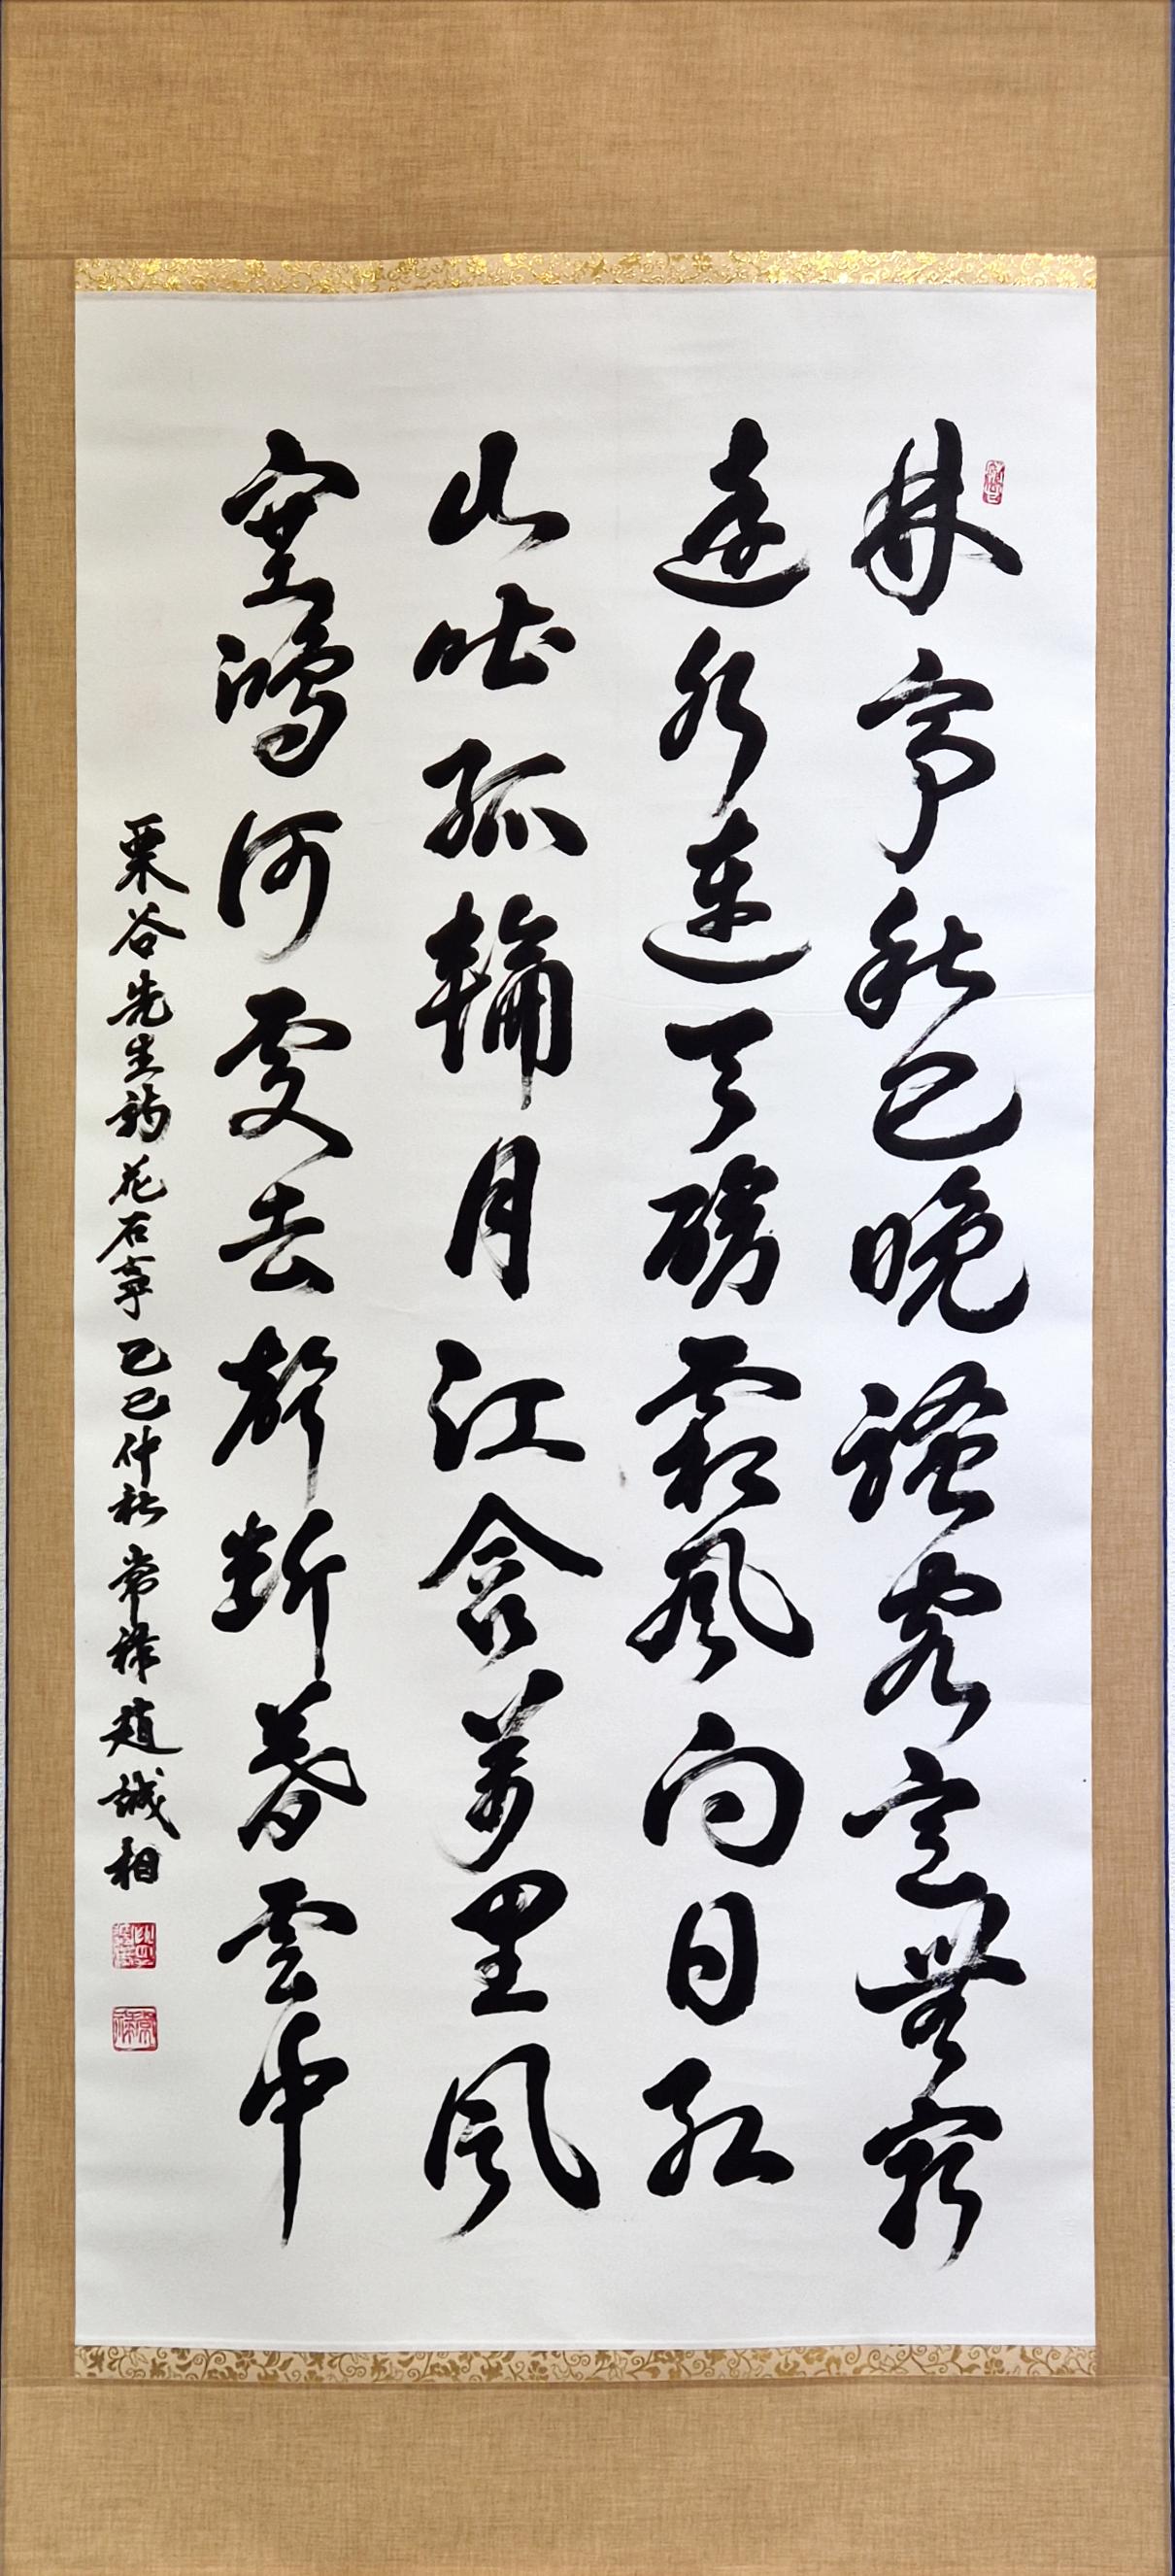 林亭秋已晚騷客意無窮
遠水連天碧霜楓向日紅
山吐孤輪月江含萬里風
塞鴻何處去聲斷暮雲中
栗谷先生 花石亭 己巳仲秋 常 趙誠相